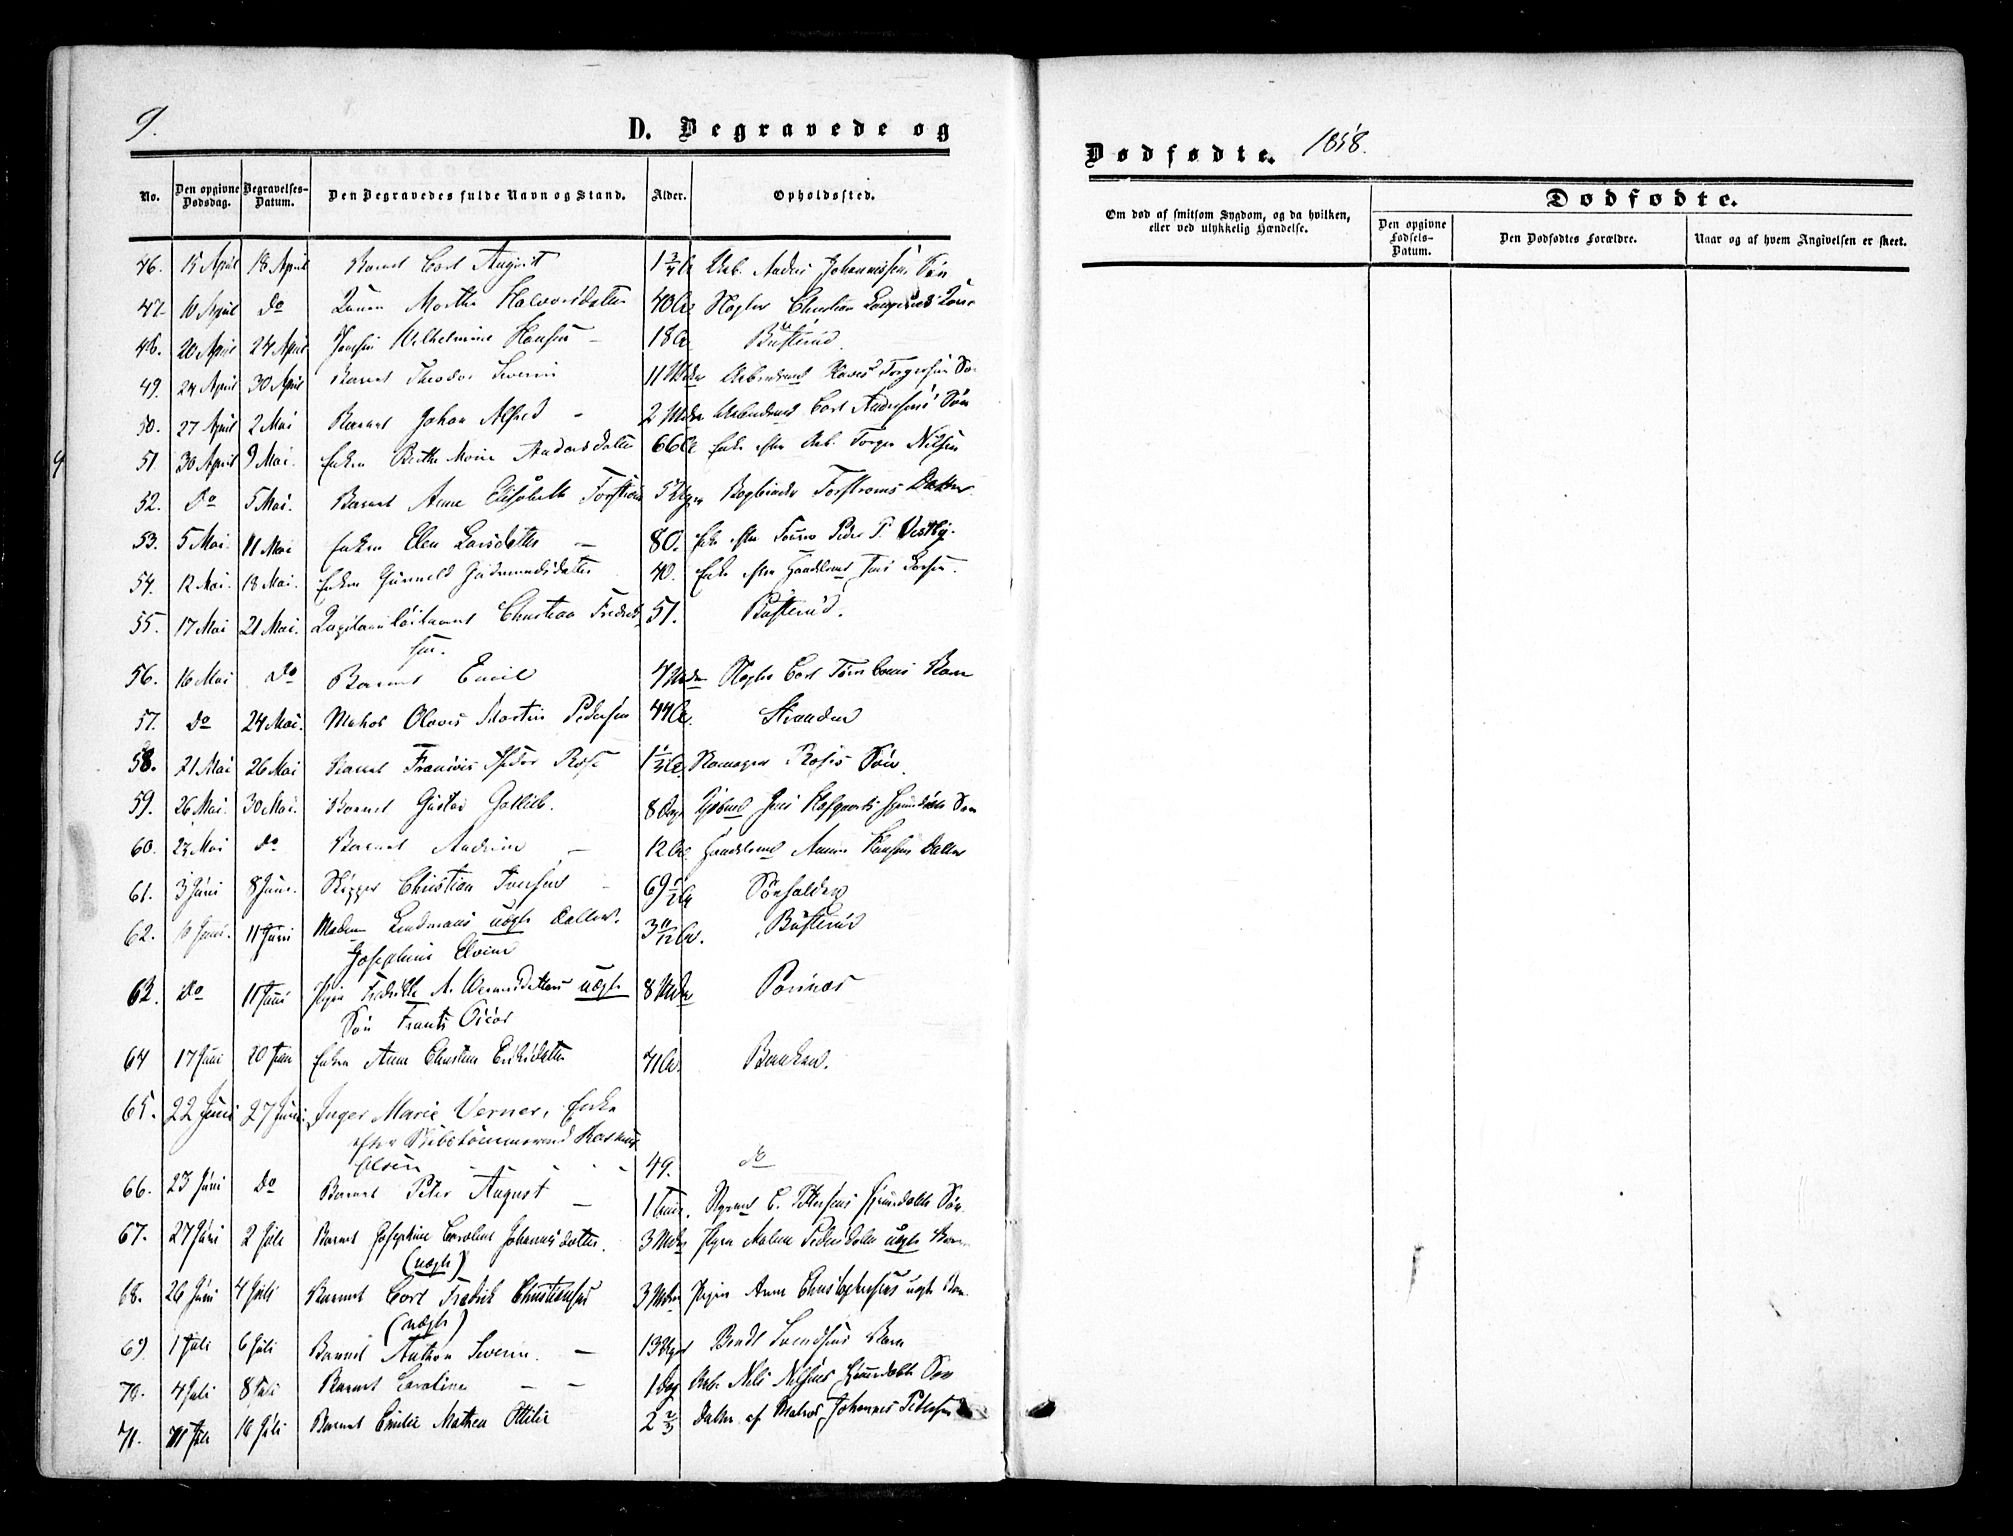 9.
D. Begravede og
No. Den opgivne Dødsdag. Begravelses-Datum. Den Begravedes fulde Navn og Stand. Alder. Opholdssted.
46. 15 April 18 April Barnet Carl August 1 3/4 Aar Arb. Anders Johannesens Søn
47. 16 April Do Konen Marthe Halvorsdatter 40 Aar Christian Kone
48. 20 April 24 April Wilhelmine Hansen 18 Aar Busterud
49. 24 April 30 April Barnet Theodor Severin 11 Mdr Arbeidsmd Torgersens Søn
50. 27 April 2 Mai Barnet Johan Alfred - 2 Mdr Arbeidsmd Carl Andersens Søn
51. 30 April 9 Mai. Enken Berthe Marie Andersdatter 66 Aar Enke efter Arb. Torger Nilsen
52. Do 5 Mai. Barnet Anne Elisabeth Forstrøm 5 Uger Bogbinder Forstrøms Datter
53. 5 Mai. 11 Mai Enken Elen Larsdatter 80. Enke efter Peder P. Vestby.
54. 12 Mai. 18 Mai. Enken Gunneld Gudmundsdatter 40. Enke efter Handelsmd
55. 17 Mai 21 Mai. Christian Fredrik 51. Busterud.
sen.
56. 16 Mai Do Barnet Emil 4 Mdr Carl Barn
57. Do 24 Mai. Matros Olaves Martin Pedersen 44 Aar. Stranden
58. 21 Mai 26 Mai Barnet Peder Rose 1 1/3 Aar Skomager Roses Søn
59. 26 Mai. 30 Mai. Barnet Gustav Gotlieb. 8 Dage Jens Søn
60. 23 Mai Do Barnet Andrine - 12 Aar Handelsmd Hansens Datter
61. 3 Juni 8 Juni. Skipper Christian Iversen 69 1/2 Aar Sørhalden
62. 10 Juni. 11 Juni Madam Lindmans uægte Datter. 3 11/12 Aar. Busterud
Josephine Elvine
63. Do 11 Juni Pigen uægte 8 Mdr
Søn Frants Oscar
64 17 Juni 20 Juni Enken Anne Christine Eriksdatter 71 Aar. Banken.
65. 22 Juni 27 Juni. Inger Marie Verner, Enke
efter Skibstømmermand Rasmus
Olsen - - - 49. do
66. 23 Juni Do Barnet Peter August - 1 Time. Styrmd C. Pettersens Søn.
67. 27 Juni 2 Juli Barnet Josephine Caroline Johannesdatter. 3 Mdr Pigen Malene Pedersdatter uægte Barn
(uægte)
68. 26 Juni 4 Juli Barnet Carl Fredrik Christiansen 3 Mdr Pigen Anne Christophersens uægte Barn.
(uægte)
69. 1 Juli 6 Juli Barnet Anthon Severin. - 13 Uger Berndt Svendsens Barn
70. 4 Juli 8 Juli Barnet Caroline - - 1 Dag Arb. Nils Nilsens
71. 11 Juli 16 Juli Barnet Emilie Mathea Ottilie 2 2/3 Datter af Matros Johannes Pettersen
Dødfødte. 1858.
Om død af smitsom Sygdom, og da hvilken, eller ved ulykkelig Hændelse.
Dødfødte.
Den opgivne Fødsels-Datum. Den Dødfødtes Forældre. Naar og af hvem Angivelsen er skeet.